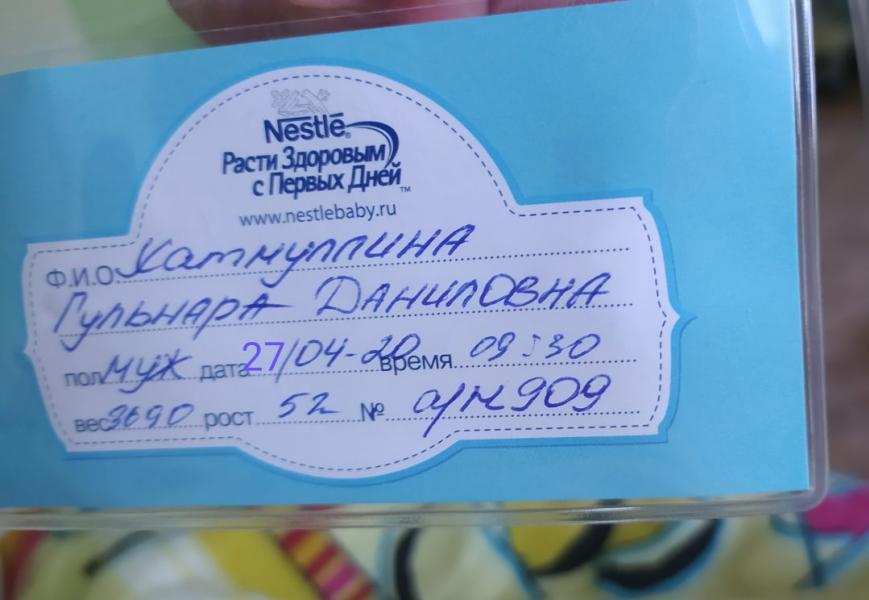 Nestlē®
Расти Здоровым
с Первых Дней™
www.nestlebaby.ru
Ф.И.О. Хатмуллина
Гульнара Даниловна
пол муж дата 27/04-20 время 09:30
вес 3690 рост 52 № о/н 909